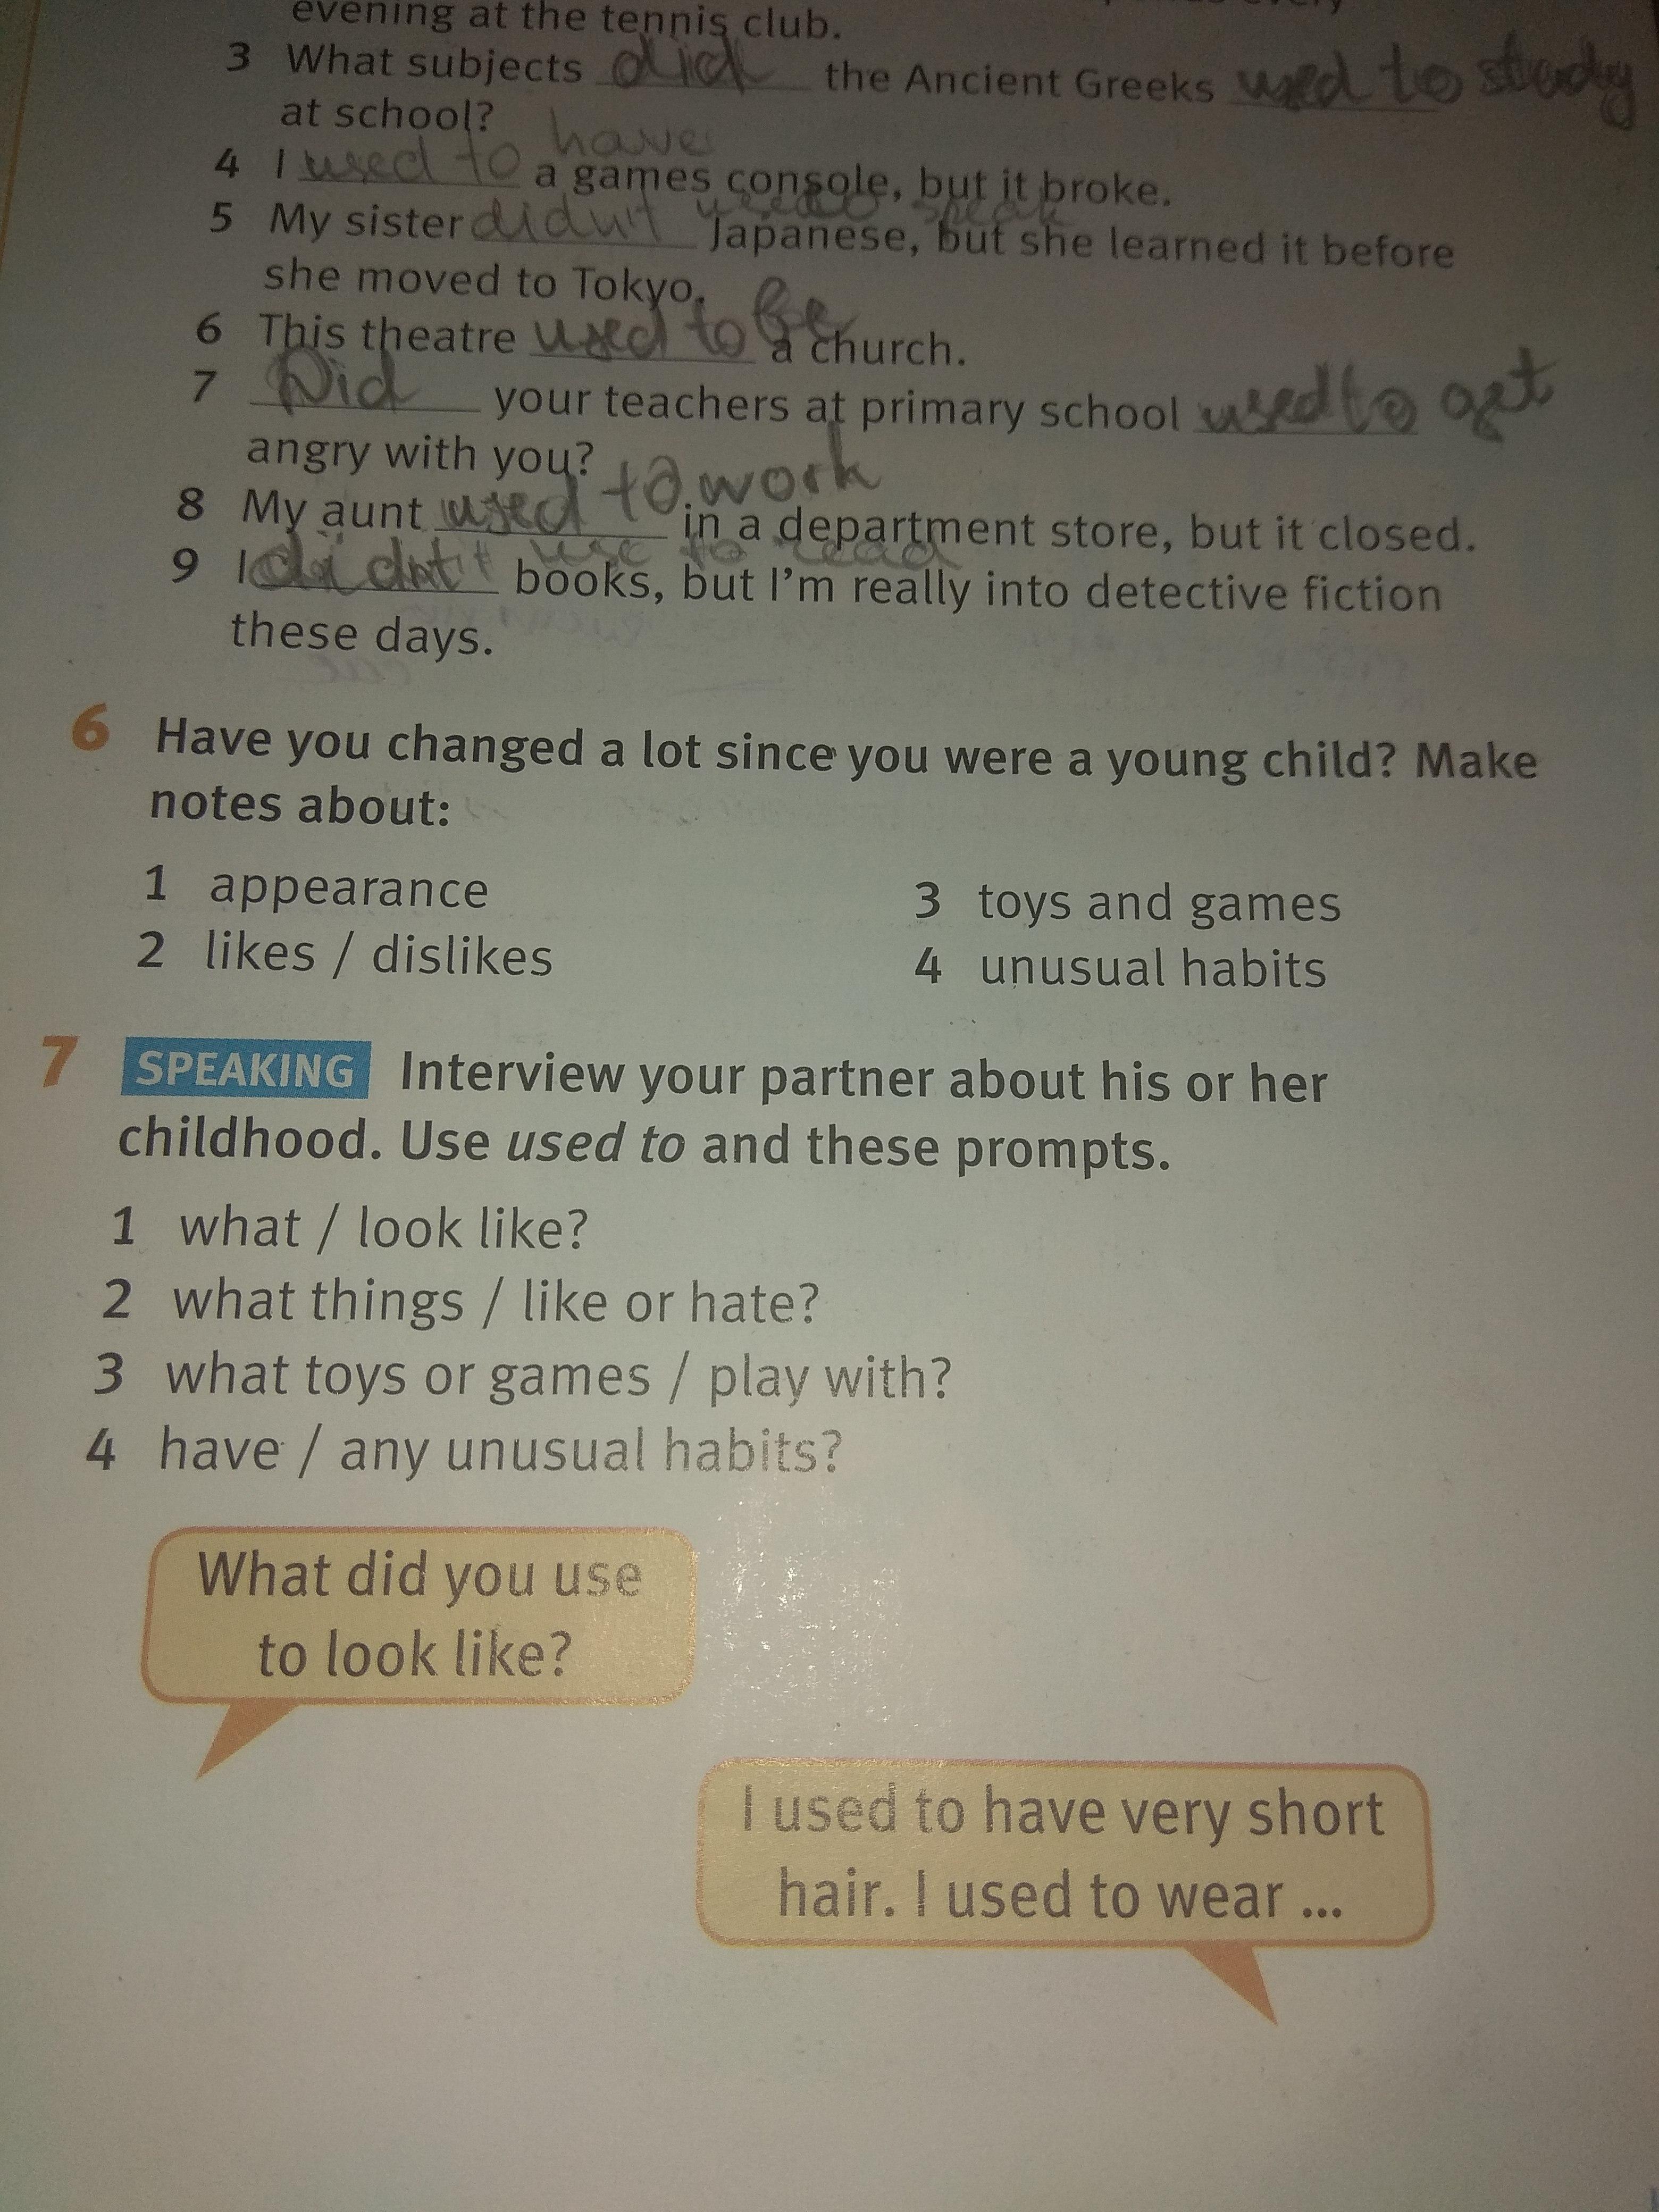 evening at the tennis club.
3 What subjects did the Ancient Greeks used to study
at school?
4 I used to have a games console, but it broke.
5 My sister didn't speak Japanese, but she learned it before
she moved to Tokyo.
6 This theatre used to be a church.
7 Did your teachers at primary school used to get
angry with you?
8 My aunt used to work in a department store, but it closed.
9 I didn't use to read books, but I'm really into detective fiction
these days.
6 Have you changed a lot since you were a young child? Make
notes about:
1 appearance
2 likes / dislikes
3 toys and games
4 unusual habits
7 SPEAKING Interview your partner about his or her
childhood. Use used to and these prompts.
1 what / look like?
2 what things / like or hate?
3 what toys or games / play with?
4 have / any unusual habits?
What did you use
to look like?
I used to have very short
hair. I used to wear ...